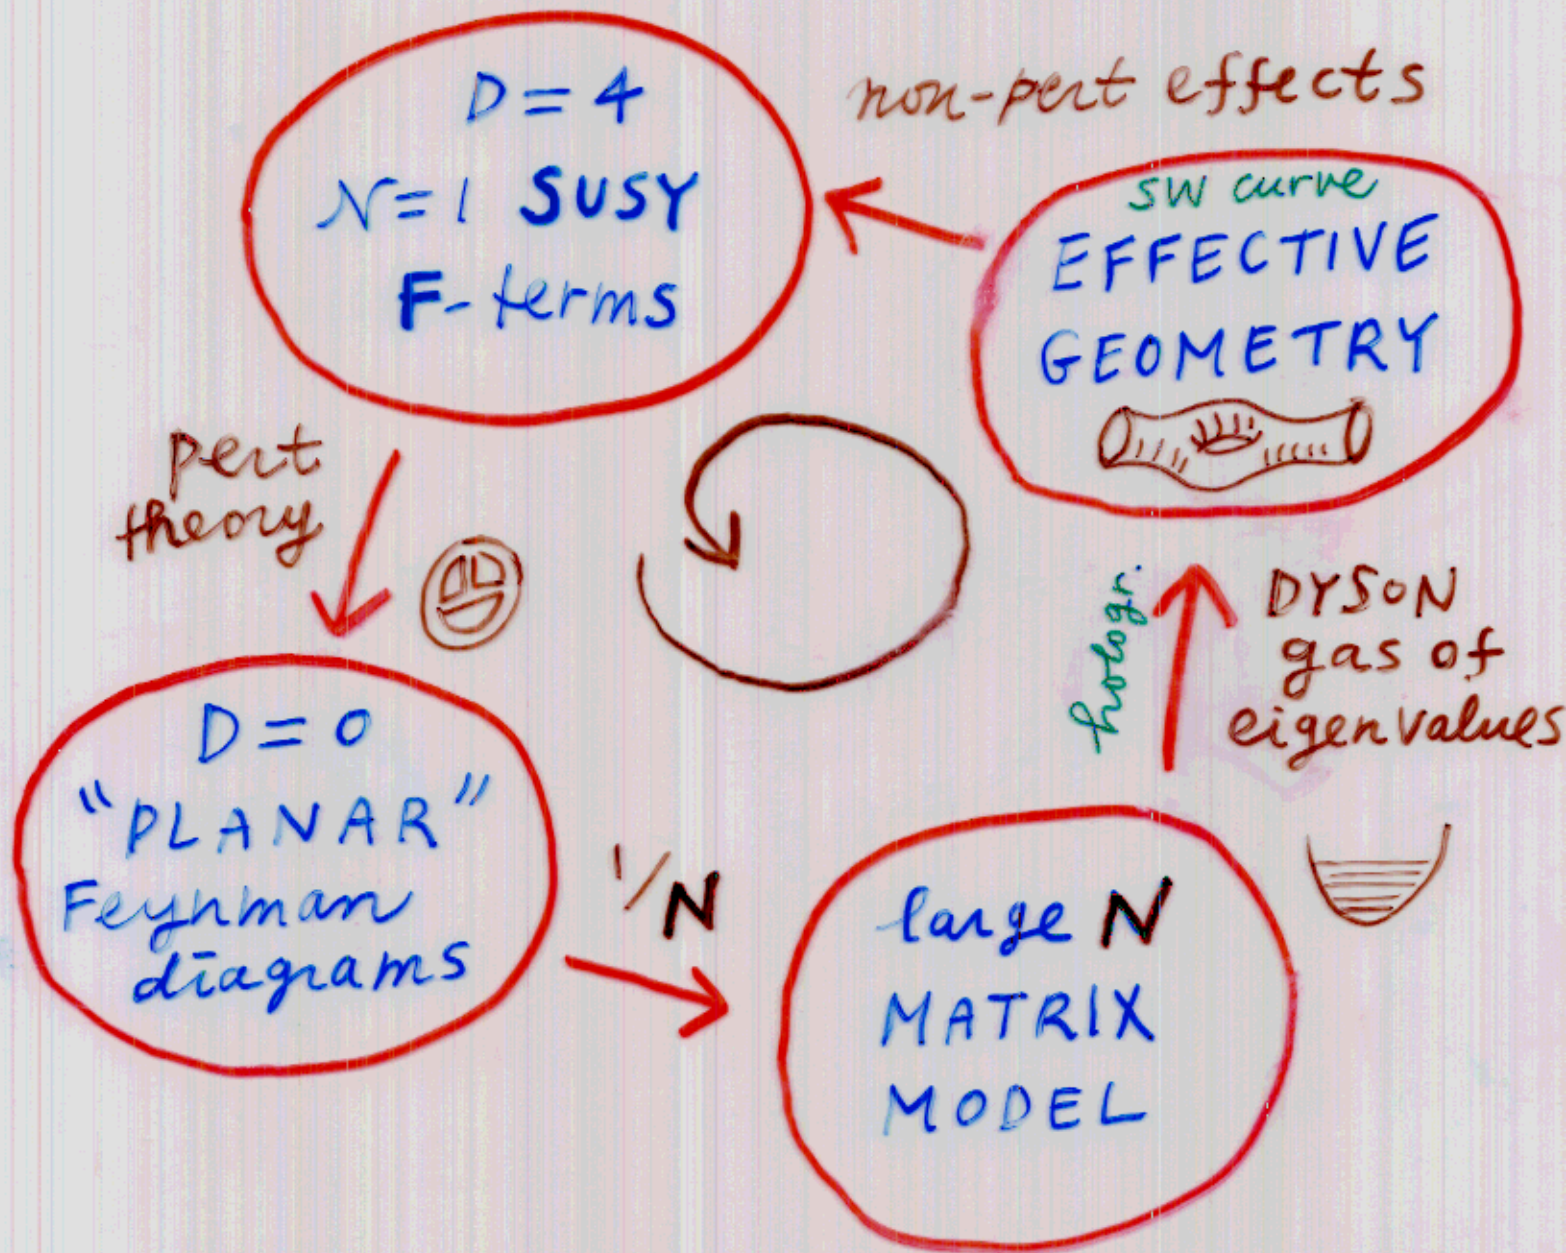 D = 4
N = 1 SUSY
F-terms
non-pert effects
SW curve
EFFECTIVE
GEOMETRY
pert
theory
hologr.
DYSON
gas of
eigenvalues
D = 0
"PLANAR"
Feynman
diagrams
1/N
large N
MATRIX
MODEL